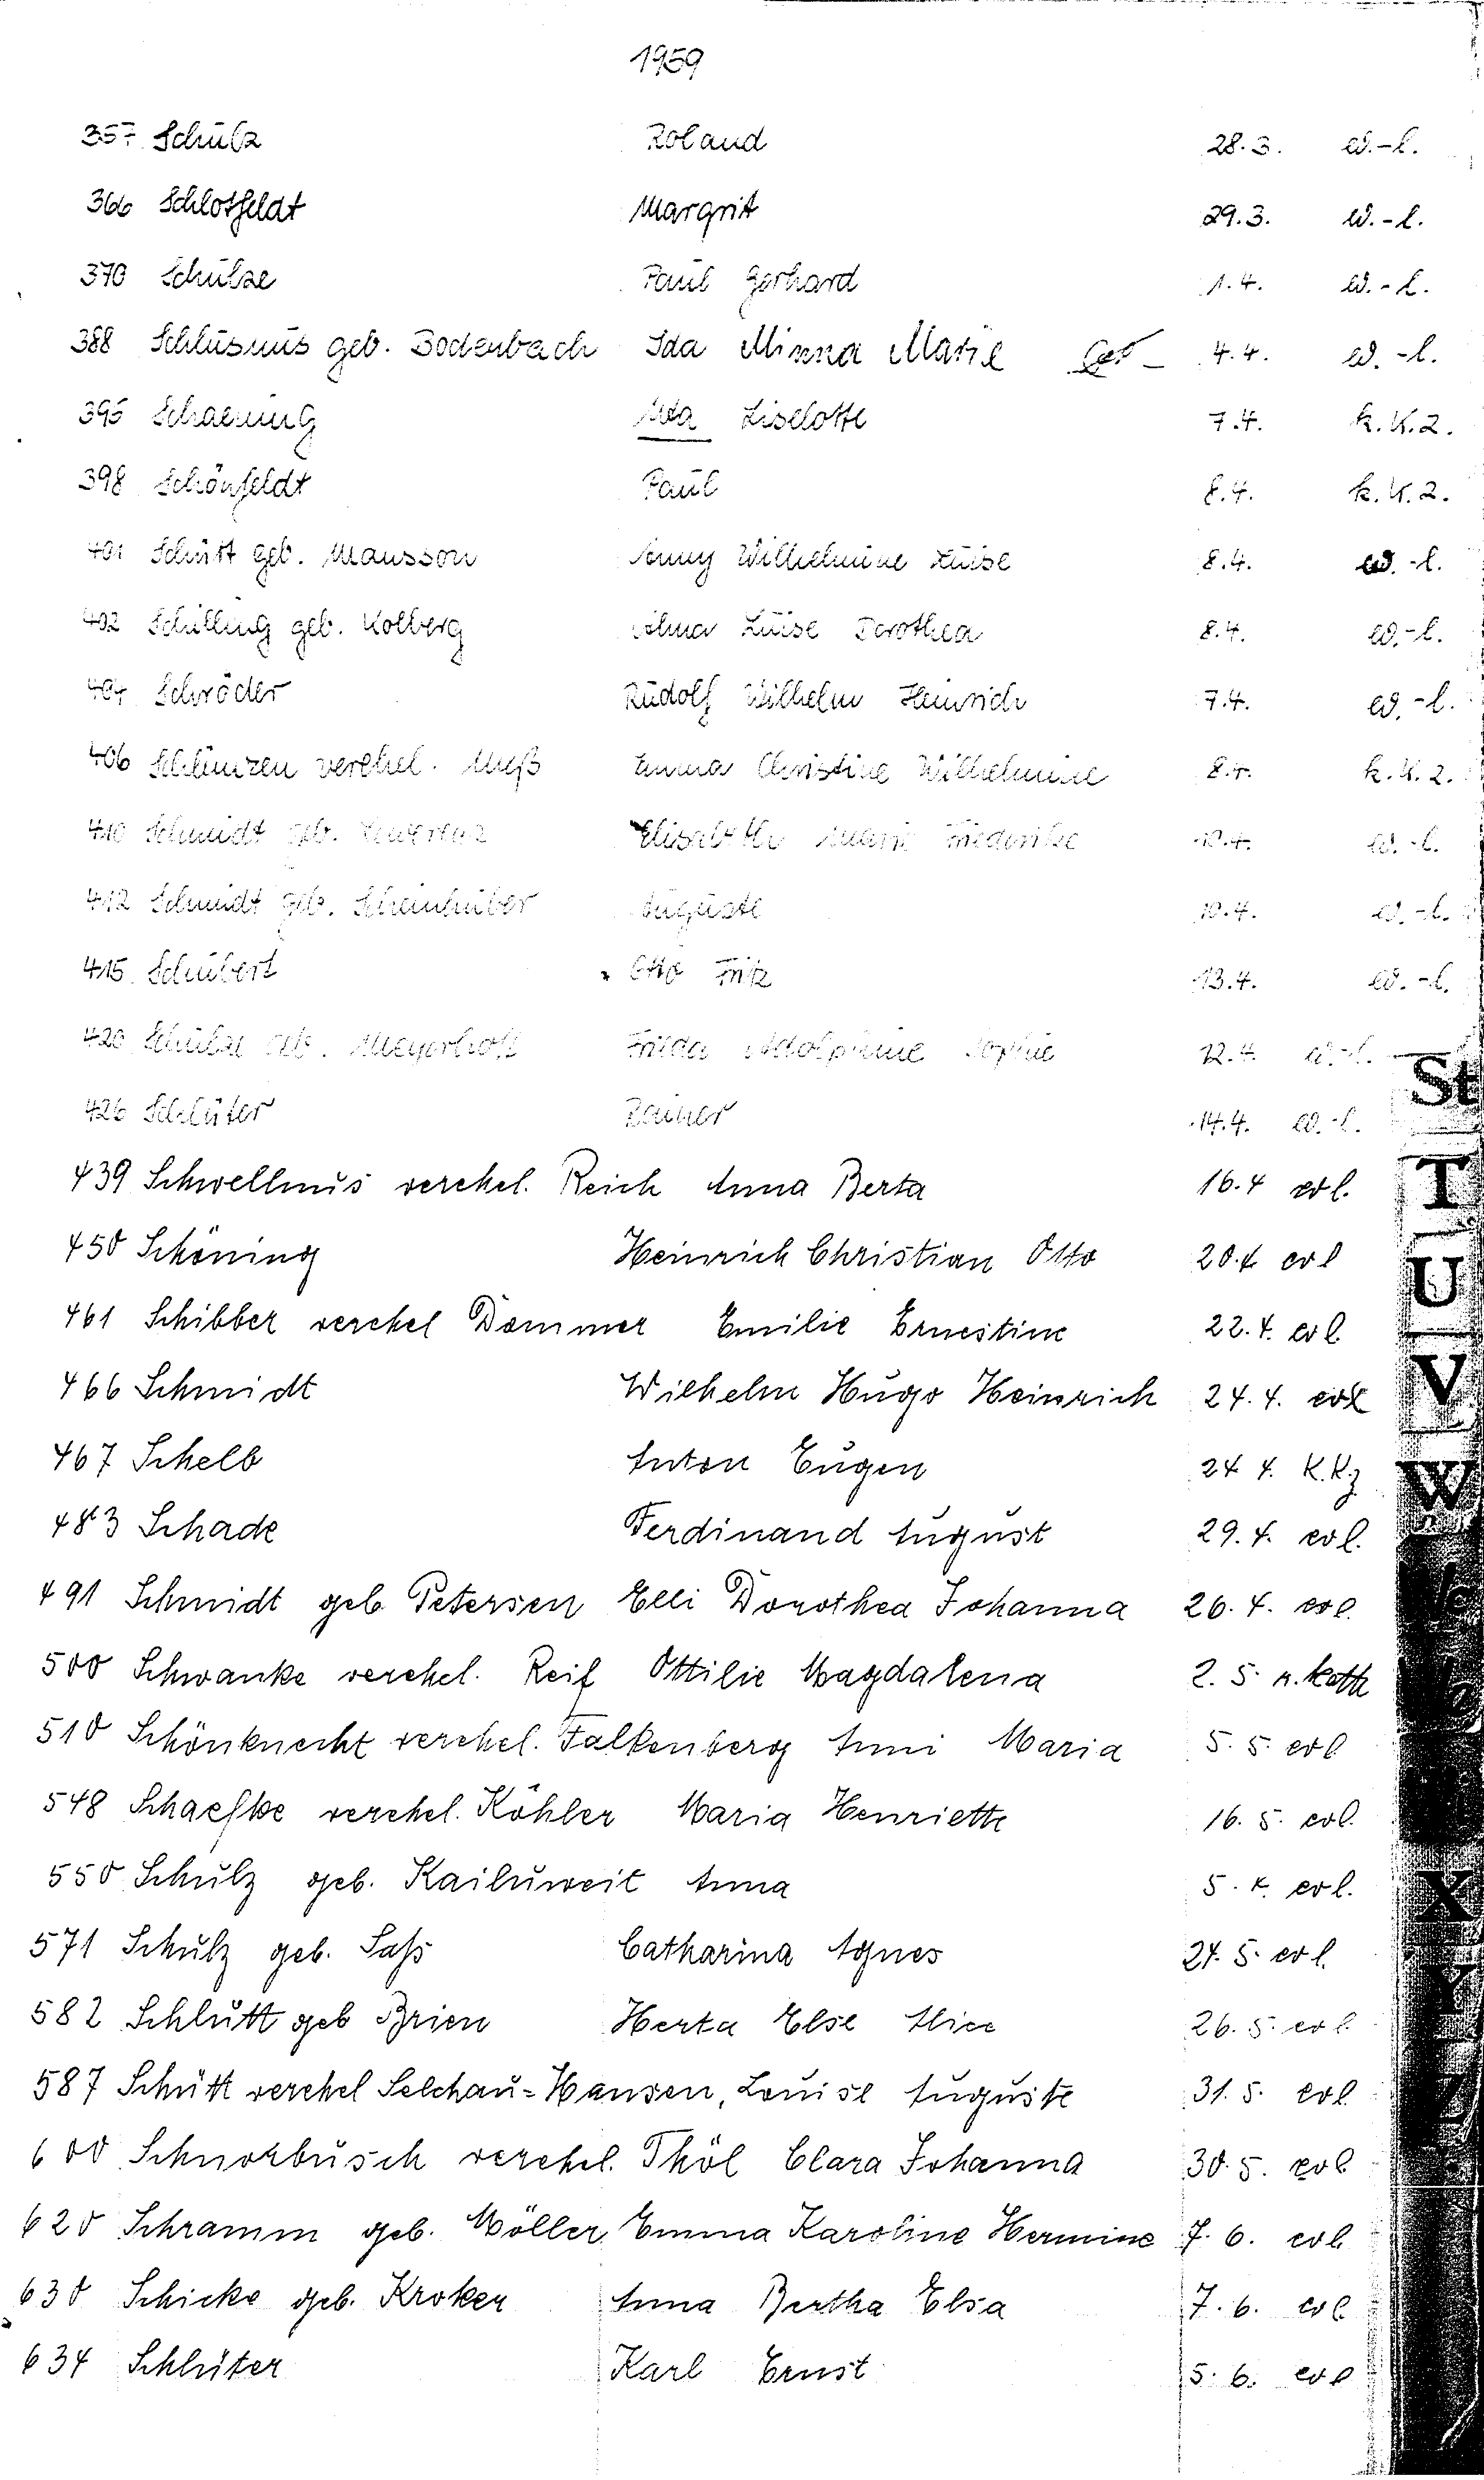 1959
357 Schulz Roland 28.3. ev.-l.
366 Schlotfeldt Margrit 29.3. ev.-l.
370 Schulze Paul Gerhard 1.4. ev.-l.
388 Schlusnus geb. Bodenbach Ida Minna Marie 4.4. ev.-l.
395 Schaening Uta Liselotte 7.4. k.K.z.
398 Schönfeldt Paul 8.4. k.K.z.
401 Schütt geb. Mausson Anny Wilhelmine Luise 8.4. ev.-l.
402 Schilling geb. Kolberg Alma Luise Dorothea 8.4. ev.-l.
404 Schröder Rudolf Wilhelm Heinrich 7.4. ev.-l.
406 Schlünzen verehel. Muß Emma Christine Wilhelmine 8.4. k.K.z.
410 Schmidt geb. Elisabeth Marie Friederike 10.4. ev.-l.
412 Schmidt geb. Scheinhuber Auguste 10.4. ev.-l.
415 Schubert Otto Fritz 13.4. ev.-l.
420 Schulze geb. Meyerhoff Frieda Adolphine Sophie 12.4. ev.-l.
St
426 Schlüter Rainer 14.4. ev.-l.
439 Schwellnus verehel. Reich Anna Berta 16.4 ev l.
T
450 Schöning Heinrich Christian Otto 20.4 ev l
U
461 Schibber verehel Dommer Emilie Ernestine 22.4. ev l.
466 Schmidt Wilhelm Hugo Heinrich 24.4. ev l
V
467 Schelb Anton Eugen 24 4. K.Kz
W
483 Schade Ferdinand August 29.4. ev l.
491 Schmidt geb. Petersen Elli Dorothea Johanna 26.4. ev l.
500 Schwanke verehel. Reif Ottilie Magdalena 2.5. r.kath
510 Schönknecht verehel. Falkenberg Anni Maria 5.5. ev l
548 Schaefke verehel. Köhler Maria Henriette 16.5. ev l.
550 Schulz geb. Kailuweit Anna 5.4. ev l.
X
571 Schulz geb. Saß Catharina Agnes 24.5. ev l.
Y
582 Schlutt geb Brien Herta Else Alice 26.5. ev l.
587 Schütt verehel Selchau=Hansen, Louise Auguste 31.5. ev l.
Z
600 Schnorbusch verehel. Thöl Clara Johanna 30.5. ev l.
620 Schramm geb. Möller Emma Karoline Hermine 7.6. ev l
630 Schicke geb. Kroker Anna Bertha Elsa 7.6. ev l
634 Schlüter Karl Ernst 5.6. ev l